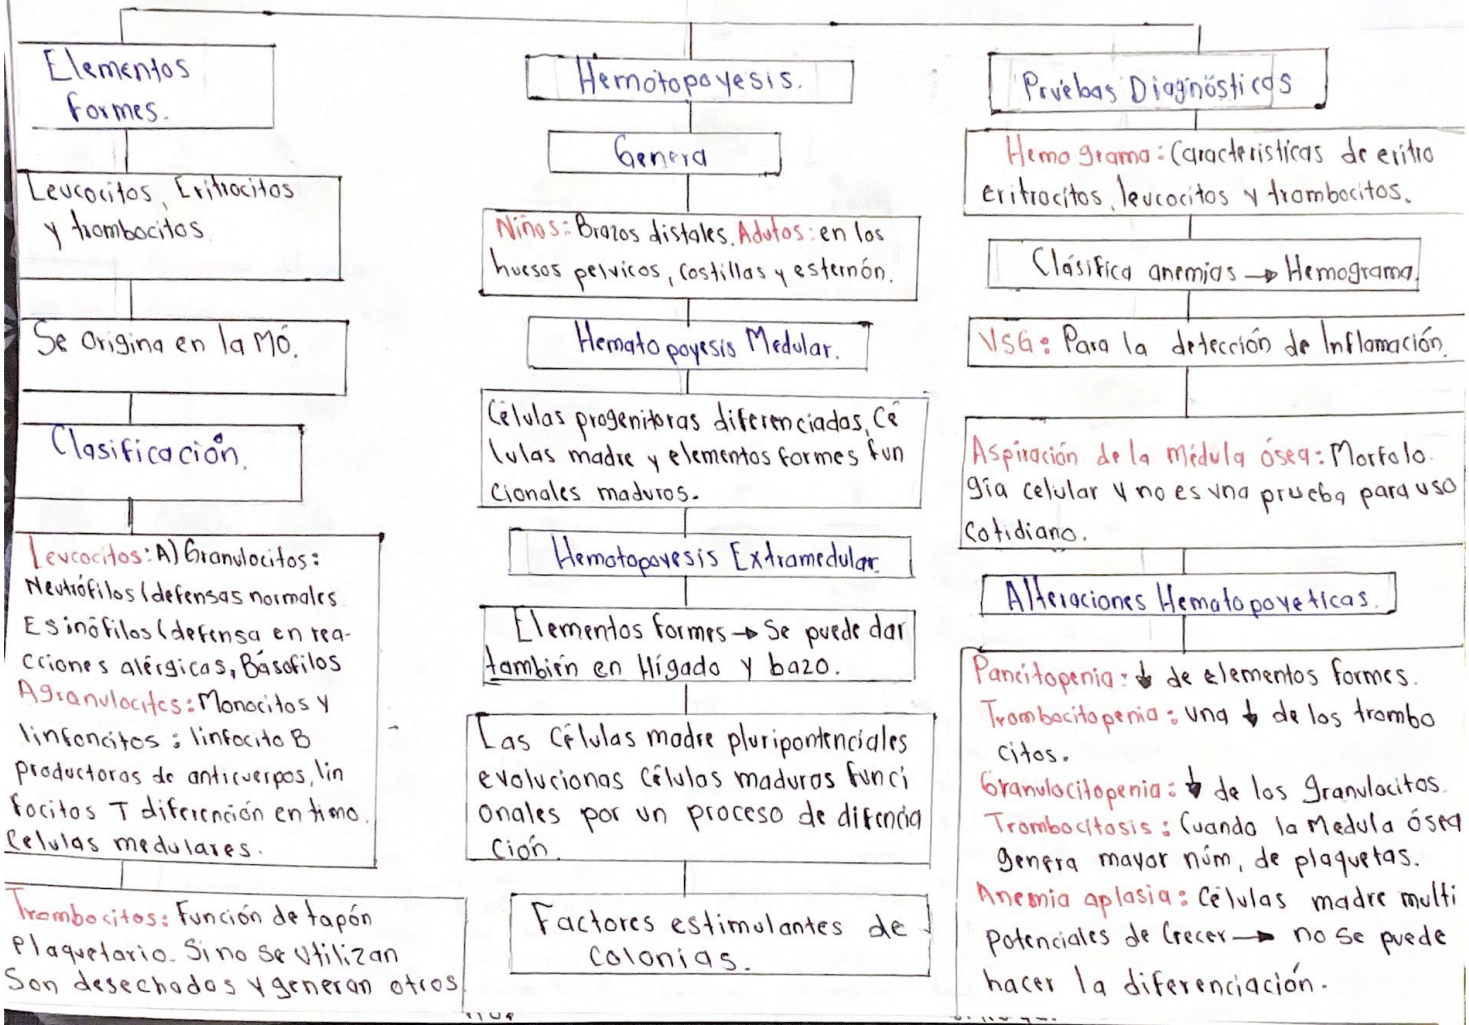 Elementos
formes.
Leucocitos, Eritrocitos
y trombocitos
Se origina en la MO.
Clasificación.
Leucocitos: A) Granulocitos:
Neutrófilos (defensas normales
Esinófilos (defensa en rea-
cciones alérgicas, Básofilos
Agranulocitos: Monocitos y
linfoncitos : linfocito B
productoras de anticuerpos, lin
focitos T diferención en timo.
Celulas medulares.
Trombocitos: Función de tapón
plaquetario. Si no se utilizan
Son desechados y generan otros
Hemotopoyesis.
Genera
Niños: Brazos distales. Adutos: en los
huesos pelvicos, costillas y esternón.
Hematopoyesis Medular.
Células progenitoras diferenciadas, Cé
lulas madre y elementos formes fun
cionales maduros.
Hematopoyesis Extramedular
Elementos formes → Se puede dar
también en Hígado y bazo.
Las Células madre pluripontenciales
evolucionas Células maduras funci
onales por un proceso de difencia
ción.
Factores estimulantes de
colonias.
Pruebas Diagnósticas
Hemograma: Características de eritro
eritrocitos, leucocitos y trombocitos.
Clásifica anemias → Hemograma.
VSG: Para la detección de Inflamación.
Aspiración de la médula ósea: Morfolo
gía celular y no es una prueba para uso
cotidiano.
Alteraciones Hematopoyeticas.
Pancitopenia: ↓ de elementos formes.
Trombocitopenia: una ↓ de los trombo
citos.
Granulocitopenia: ↓ de los granulocitos.
Trombocitosis: Cuando la Medula ósea
genera mayor núm. de plaquetas.
Anemia aplasia: Células madre multi
potenciales de Crecer → no se puede
hacer la diferenciación.